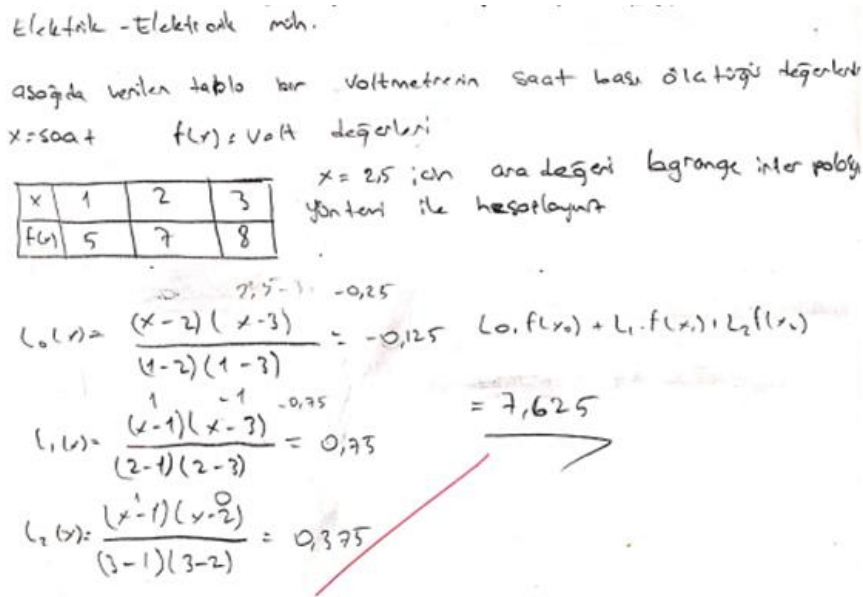 Elektrik - Elektronik müh.
aşağıda verilen tablo bir voltmetrenin saat başı ölçtüğü değerlerdi
x = saat f(x) = Volt değerleri
x = 2,5 için ara değeri lagrange inter polasyo
yöntemi ile hesaplayınız
x 1 2 3
f(x) 5 7 8
2,5-3 -0,25
L₀(x) = (x-2)(x-3) / (1-2)(1-3) = -0,125 L₀.f(x₀) + L₁.f(x₁) + L₂f(x₂)
= 7,625
1 -1 -0,75
L₁(x) = (x-1)(x-3) / (2-1)(2-3) = 0,75
L₂(x) = (x-1)(x-2) / (3-1)(3-2) = 0,375